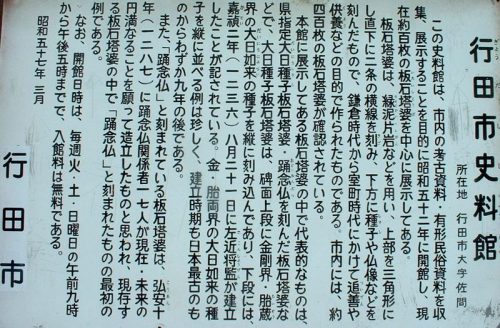 行田市史料館
ぎょうだししりょうかん
所在地 行田市大字佐間
この史料館は、市内の考古資料・有形民俗資料を収
集、展示することを目的に昭和五十二年に開館し、現
在約百枚の板石塔婆を中心に展示してある。
板石塔婆は、緑泥片岩などを用い、上部を三角形に
し直下に二条の横線を刻み、下方に種子や仏像などを
刻んだもので、鎌倉時代から室町時代にかけて追善や
供養などの目的で作られたものである。市内には、約
四百枚の板石塔婆が確認されている。
本館に展示してある板石塔婆の中で代表的なものは、
県指定大日種子板石塔婆・踊念仏を刻んだ板石塔婆な
どで、大日種子板石塔婆は、碑面上段に金剛界・胎蔵
界の大日如来の種子を縦に刻み込んであり、下段には、
嘉禎二年(一二三六)八月二十一日に左近将監が建立
したことが記されている。金・胎両界の大日如来の種
子を縦に並べる例は珍しく、建立時期も日本最古のも
のからわずか九年の後である。
また、「踊念仏」と刻まれている板石塔婆は、弘安十
年(一二八七)に踊念仏関係者一七人が現在・未来の
円満なることを願って造立したものと思われ、現存す
る板石塔婆の中で「踊念仏」と刻まれたものの最初の
例である。
なお、開館日時は、毎週火・土・日曜日の午前九時
から午後五時までで、入館料は無料である。
昭和五十七年 三月
行田市